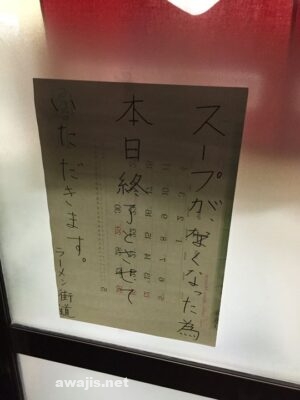 スープが、なくなった為
本日終了とさせて
いただきます。
ラーメン街道
awajis.net